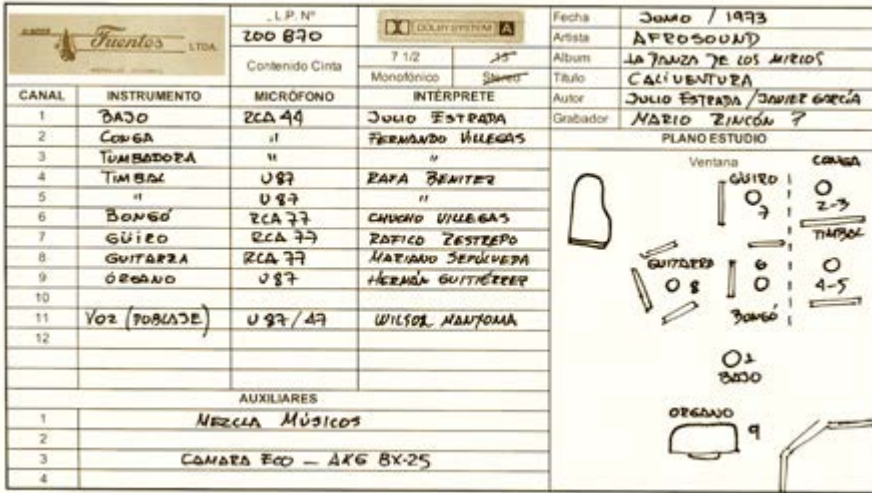 DISCOS Fuentes LTDA.
L.P. Nº
200 870
Contenido Cinta
DOLBY SYSTEM A
7 1/2
15
Monofónico
Stereo
Fecha JUNIO / 1973
Artista AFROSOUND
Album LA DANZA DE LOS MIRLOS
Título CALIVENTURA
Autor JULIO ESTRADA / JAVIER GARCÍA
Grabador MARIO RINCÓN P
CANAL INSTRUMENTO MICRÓFONO INTÉRPRETE
1 BAJO RCA 44 JULIO ESTRADA
2 CONGA " FERNANDO VILLEGAS
3 TUMBADORA " "
4 TIMBAL U87 RAFA BENITEZ
5 " U87 "
6 BONGÓ RCA 77 CHUCHO VILLEGAS
7 GÜIRO RCA 77 RAFICO RESTREPO
8 GUITARRA RCA 77 MARIANO SEPÚLVEDA
9 ÓRGANO U87 HERNÁN GUITIÉRREZ
10
11 VOZ (DOBLAJE) U87/47 WILSON MANYOMA
12
AUXILIARES
1 MEZCLA MÚSICOS
2
3 CAMARA ECO — AKG BX-25
4
PLANO ESTUDIO
Ventana
CONGA
2-3
GÜIRO
7
TIMBAL
4-5
GUITARRA
8
6
BONGÓ
1
BAJO
ORGANO
9